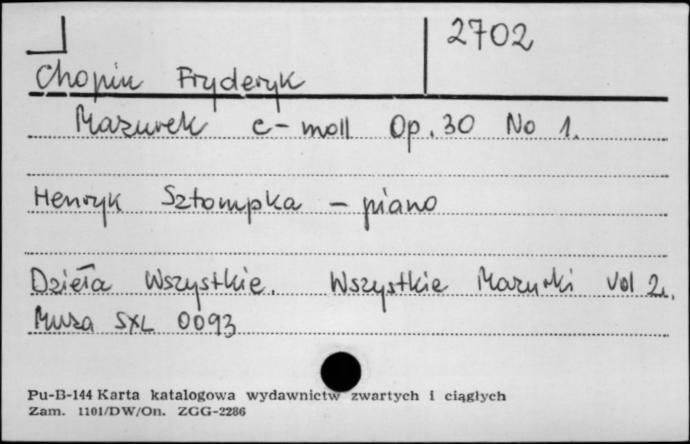 2702
Chopin Fryderyk
Mazurek c-moll Op. 30 No 1.
Henryk Sztompka - piano
Dzieła Wszystkie. Wszystkie Mazurki Vol 2.
Muza SXL 0093
Pu-B-144 Karta katalogowa wydawnictw zwartych i ciągłych
Zam. 1101/DW/On. ZGG-2286